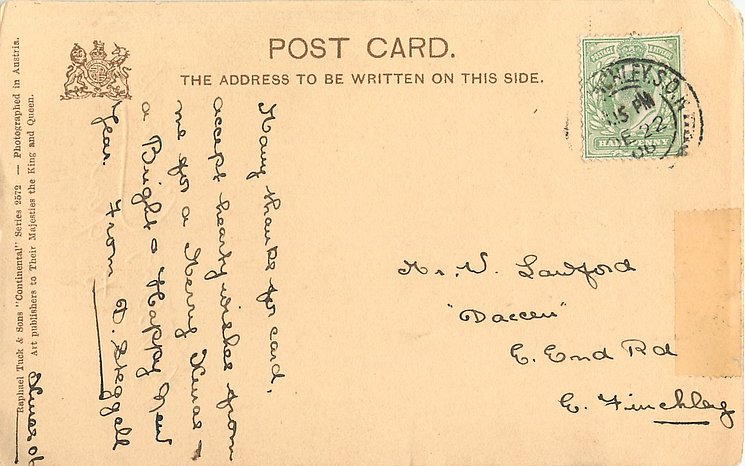 POST CARD.
THE ADDRESS TO BE WRITTEN ON THIS SIDE.
Raphael Tuck & Sons "Continental" Series 2572 — Photographed in Austria.
Art publishers to Their Majesties the King and Queen.
Many thanks for card,
accept hearty wishes from
me for a Merry Xmas
a Bright & Happy New
Year. From D. Skeggell
Mr. V. Lawford
"Daccen"
E. End Rd
E. Finchley
POSTAGE & REVENUE
HALF PENNY
NCHLEY.S.O.
.15 PM
DE 22
06